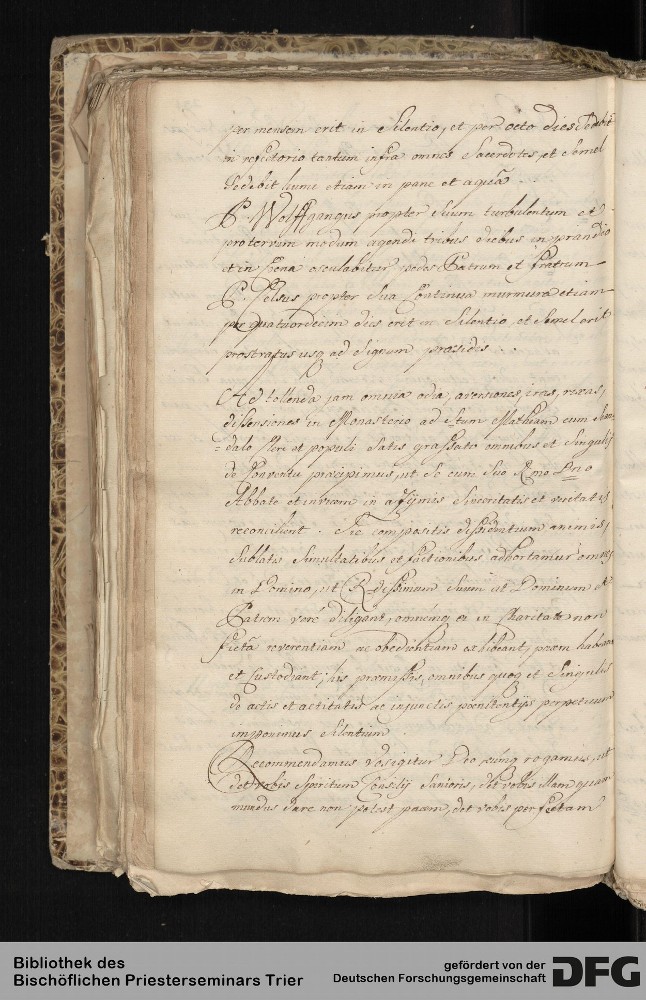 per mensem erit in Silentio, et per octo dies Sedebit
in refectorio tantum infra omnes Sacerdotes, et Semel
Sedebit hunc etiam in pane et aqua
P. Wolffgangus propter Suum turbulentum et
protervum modum agendi tribus diebus in prandio
et in Coena osculabitur pedes Patrum et fratrum
P. Celsus propter Sua Continua murmura etiam
per quatuordecim dies erit in Silentio, et Semel orit
prostratus usq ad Signum præsidis
Ad tollenda jam omnia odia, aversiones, iras, rixas,
dissensiones in Monasterio ad Stum Mathiam cum Scan
dalo Cleri et populi Satis grassato omnibus et Singulis
de Conventu præcipimus, ut Se cum Suo Rmo Dno
Abbate et invicem in Sinceritatis et
reconcilient. Sic compositis dissidentium animis,
Sublatis Simultatibus et factionibus adhortamur omnes
in Domino, ut Rdissimum Suum ut Dominum et
Patrem vere diligant, omnemq ei in Charitate non
ficta reverentiam ac obedientiam exhibeant, pacem habeant
et Custodiant; his præmissis, omnibus quoq et Singulis
de actis et actitatis ac injunctis poenitentijs perpetuum
imponimus Silentium.
Recommendamus vos igitur Deo eumq rogamus, ut
det vobis Spiritum Consilij Sanioris, det vobis illam quam
mundus dare non potest pacem, det vobis perfectam
Bibliothek des
Bischöflichen Priesterseminars Trier
gefördert von der
Deutschen Forschungsgemeinschaft
DFG